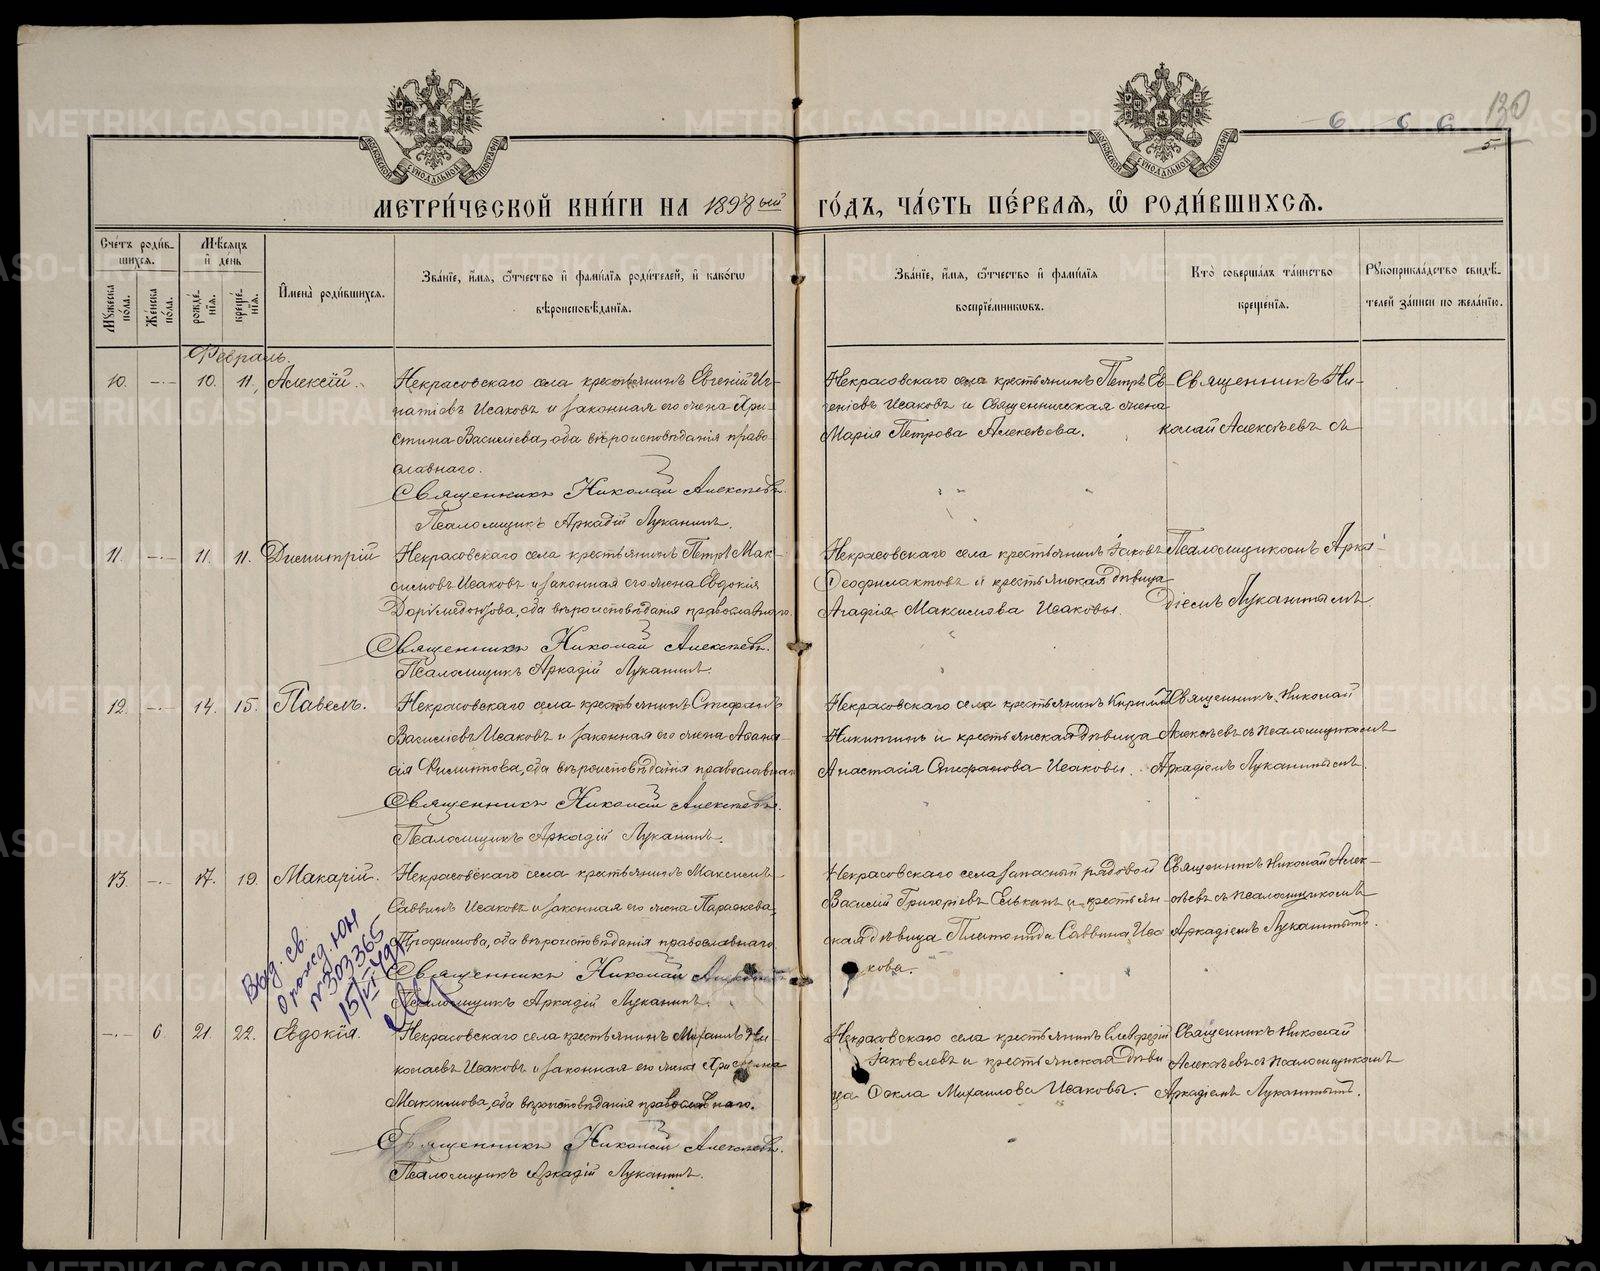 130
6 6 6
5.
МОСКОВСКОЙ СѴНОДАЛЬНОЙ ТИПОГРАФІИ
МОСКОВСКОЙ СѴНОДАЛЬНОЙ ТИПОГРАФІИ
МЕТРИ́ЧЕСКОЙ КНИ́ГИ НА 1898ый ГО́ДЪ, ЧА́СТЬ ПЕ́РВАѦ, Ѡ҆ РОДИ́ВШИХСѦ.
Сче́тъ роди́в-
шихсѧ.
Мꙋ́жеска по́ла.
Же́нска по́ла.
Мѣ́сѧцъ
и҆ де́нь
рожде́-нїѧ.
креще́-нїѧ.
И҆мена̀ роди́вшихсѧ.
Зва́нїе, и҆́мѧ, ѻ҆́тчество и҆ фами́лїѧ роди́телей, и҆ како́гѡ
вѣроисповѣ́данїѧ.
Зва́нїе, и҆́мѧ, ѻ҆́тчество и҆ фами́лїѧ
воспрїе́мникѡвъ.
Кто̀ соверша́лъ та́инство
креще́нїѧ.
Рꙋкоприкла́дство свидѣ́-
телей за́писи по жела́нїю.
Февраль.
10. —·— 10. 11. Алексій.
Некрасовскаго села крестьянинъ Евгеній Иг-
натіевъ Исаковъ и законная его жена Хри-
стина Василіева, оба вѣроисповѣданія право-
славнаго.
Священникъ Николай Алексѣевъ.
Псаломщикъ Аркадій Луканинъ.
Некрасовскаго села крестьянинъ Петръ Ев-
геніевъ Исаковъ и Священническая жена
Марія Петрова Алексѣева.
Священникъ Ни-
колай Алексѣевъ съ
11. —·— 11. 11. Димитрій
Некрасовскаго села крестьянинъ Петръ Мак-
симовъ Исаковъ и законная его жена Евдокія
Доримедонтова, оба вѣроисповѣданія православнаго.
Священникъ Николай Алексѣевъ.
Псаломщикъ Аркадій Луканинъ.
Некрасовскаго села крестьянинъ Іаковъ
Ѳеофилактовъ и крестьянская дѣвица
Агафія Максимова Исаковы.
Псаломщикомъ Арка-
діемъ Луканинымъ
12. —·— 14. 15. Павелъ.
Некрасовскаго села крестьянинъ Стефанъ
Василіевъ Исаковъ и законная его жена Аѳана-
сія Филиппова, оба вѣроисповѣданія православнаго
Священникъ Николай Алексѣевъ.
Псаломщикъ Аркадій Луканинъ.
Некрасовскаго села крестьянинъ Кириллъ
Никитинъ и крестьянская дѣвица
Анастасія Стефанова Исаковы.
Священникъ Николай
Алексѣевъ съ псаломщикомъ
Аркадіемъ Луканинымъ.
13. —·— 17. 19. Макарій.
Некрасовскаго села крестьянинъ Максимъ
Саввинъ Исаковъ и законная его жена Параскева
Трофимова, оба вѣроисповѣданія православнаго
Священникъ Николай Алексѣевъ.
Псаломщикъ Аркадій Луканинъ.
Некрасовскаго села запасный рядовой
Василій Григоріевъ Елькинъ и крестьян-
ская дѣвица Платонида Саввина Иса-
кова.
Священникъ Николай Алек-
сѣевъ съ псаломщикомъ
Аркадіемъ Луканинымъ.
Выд. св.
о рожд. ЮН
№303365
15/VI-49г.
—·— 6 21. 22. Евдокія.
Некрасовскаго села крестьянинъ Михаилъ Ни-
колаевъ Исаковъ и законная его жена Христина
Максимова, оба вѣроисповѣданія православнаго.
Священникъ Николай Алексѣевъ.
Псаломщикъ Аркадій Луканинъ.
Некрасовскаго села крестьянинъ Елевферій
Іаковлевъ и крестьянская дѣви-
ца Ѳекла Михаилова Исаковы.
Священникъ Николай
Алексѣевъ съ псаломщикомъ
Аркадіемъ Луканинымъ.
METRIKI.GASO-URAL.RU